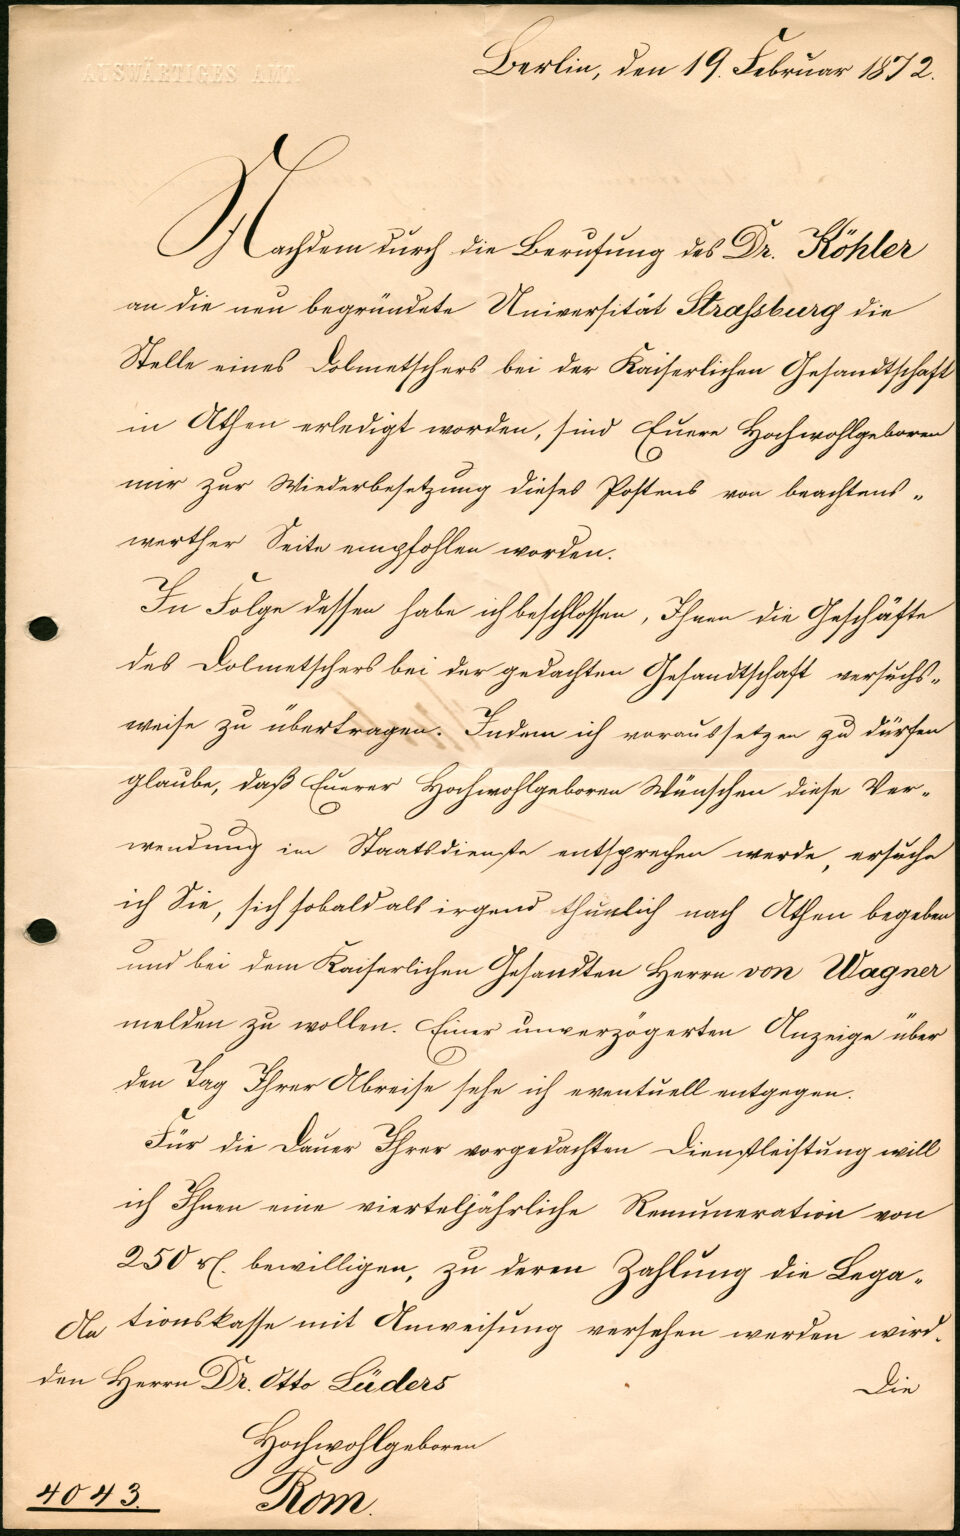 AUSWÄRTIGES AMT.
Berlin, den 19. Februar 1872.
Nachdem durch die Berufung des Dr. Köhler
an die neu begründete Universität Strassburg die
Stelle eines Dolmetschers bei der Kaiserlichen Gesandtschaft
in Athen erledigt worden, sind Euere Hochwohlgeboren
mir zur Wiederbesetzung dieses Postens von beachtens-
werther Seite empfohlen worden.
In Folge dessen habe ich beschlossen, Ihnen die Geschäfte
des Dolmetschers bei der gedachten Gesandtschaft versuchs-
weise zu übertragen. Indem ich voraussetzen zu dürfen
glaube, daß Euerer Hochwohlgeboren Wünschen diese Ver-
wendung im Staatsdienste entsprechen werde, ersuche
ich Sie, sich sobald als irgend thunlich nach Athen begeben
und bei dem Kaiserlichen Gesandten Herrn von Wagner
melden zu wollen. Einer unverzögerten Anzeige über
den Tag Ihrer Abreise sehe ich eventuell entgegen.
Für die Dauer Ihrer vorgedachten Dienstleistung will
ich Ihnen eine vierteljährliche Remuneration von
250 rℓ. bewilligen, zu deren Zahlung die Lega-
tionskasse mit Anweisung versehen werden wird.
Die
An
den Herrn Dr. Otto Lüders
Hochwohlgeboren
Rom.
4043.